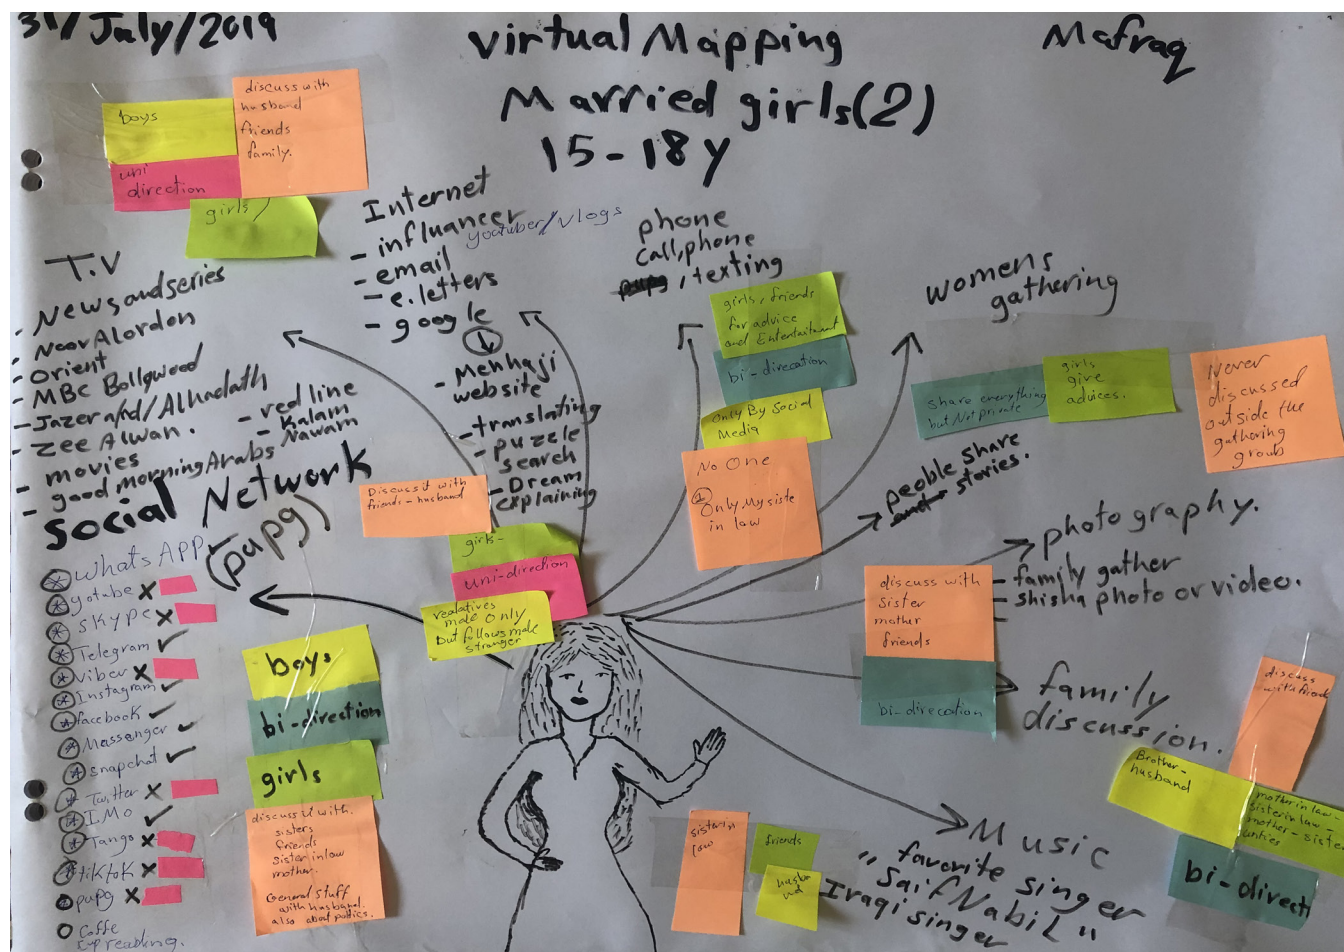 31/July/2019
Virtual Mapping
Mafraq
Married girls(2)
15-18y
boys
uni
direction
discuss with
husband
friends
family.
girls
T.V
- News and series
- Noor Alordon
- Orient
- MBC Bollywood
- Jazera / Alhadath
- Zee Alwan.
- movies
- good morning Arabs
- red line
- Kalam
Nawam
Internet
- influancer youtuber/vlogs
- email
- e.letters
- google
- Menhaji
website
- translating
- puzzle
search
- Dream
explaining
Discuss it with
friends - husband
girls-
uni-direction
realatives
male Only
but follows male
stranger
phone
Call,phone
, texting
girls, friends
for advice
and Entertaitment
bi-direcation
Only By Social
Media
No One
1 Only My siste
in law
womens
gathering
share everything
but Not private
girls
give
advices.
Never
discussed
outside the
gathering
group
people share
stories.
photography.
- family gather
- shisha photo or video.
discuss with
sister
mother
friends
bi-direcation
family
discussion.
discuss
with friends
Brother-
husband
mother in law
sister in law -
mother - sister
unties
bi-direct
Music
" favorite singer
" Saif Nabil "
Iraqi singer
sister in
law
friends
husba
nd
Social Network
(pupg)
Whats APP
yotube x
SKype x
Telegram ✓
Viber x
Instagram ✓
facebook ✓
Massenger ✓
snapchat ✓
Twitter x
IMo ✓
Tango x
tiktok x
pupg x
Coffe
cup reading.
boys
bi-direction
girls
discuss it with.
sisters
friends
sister in law
mother.
General stuff
with husband.
also about politics.